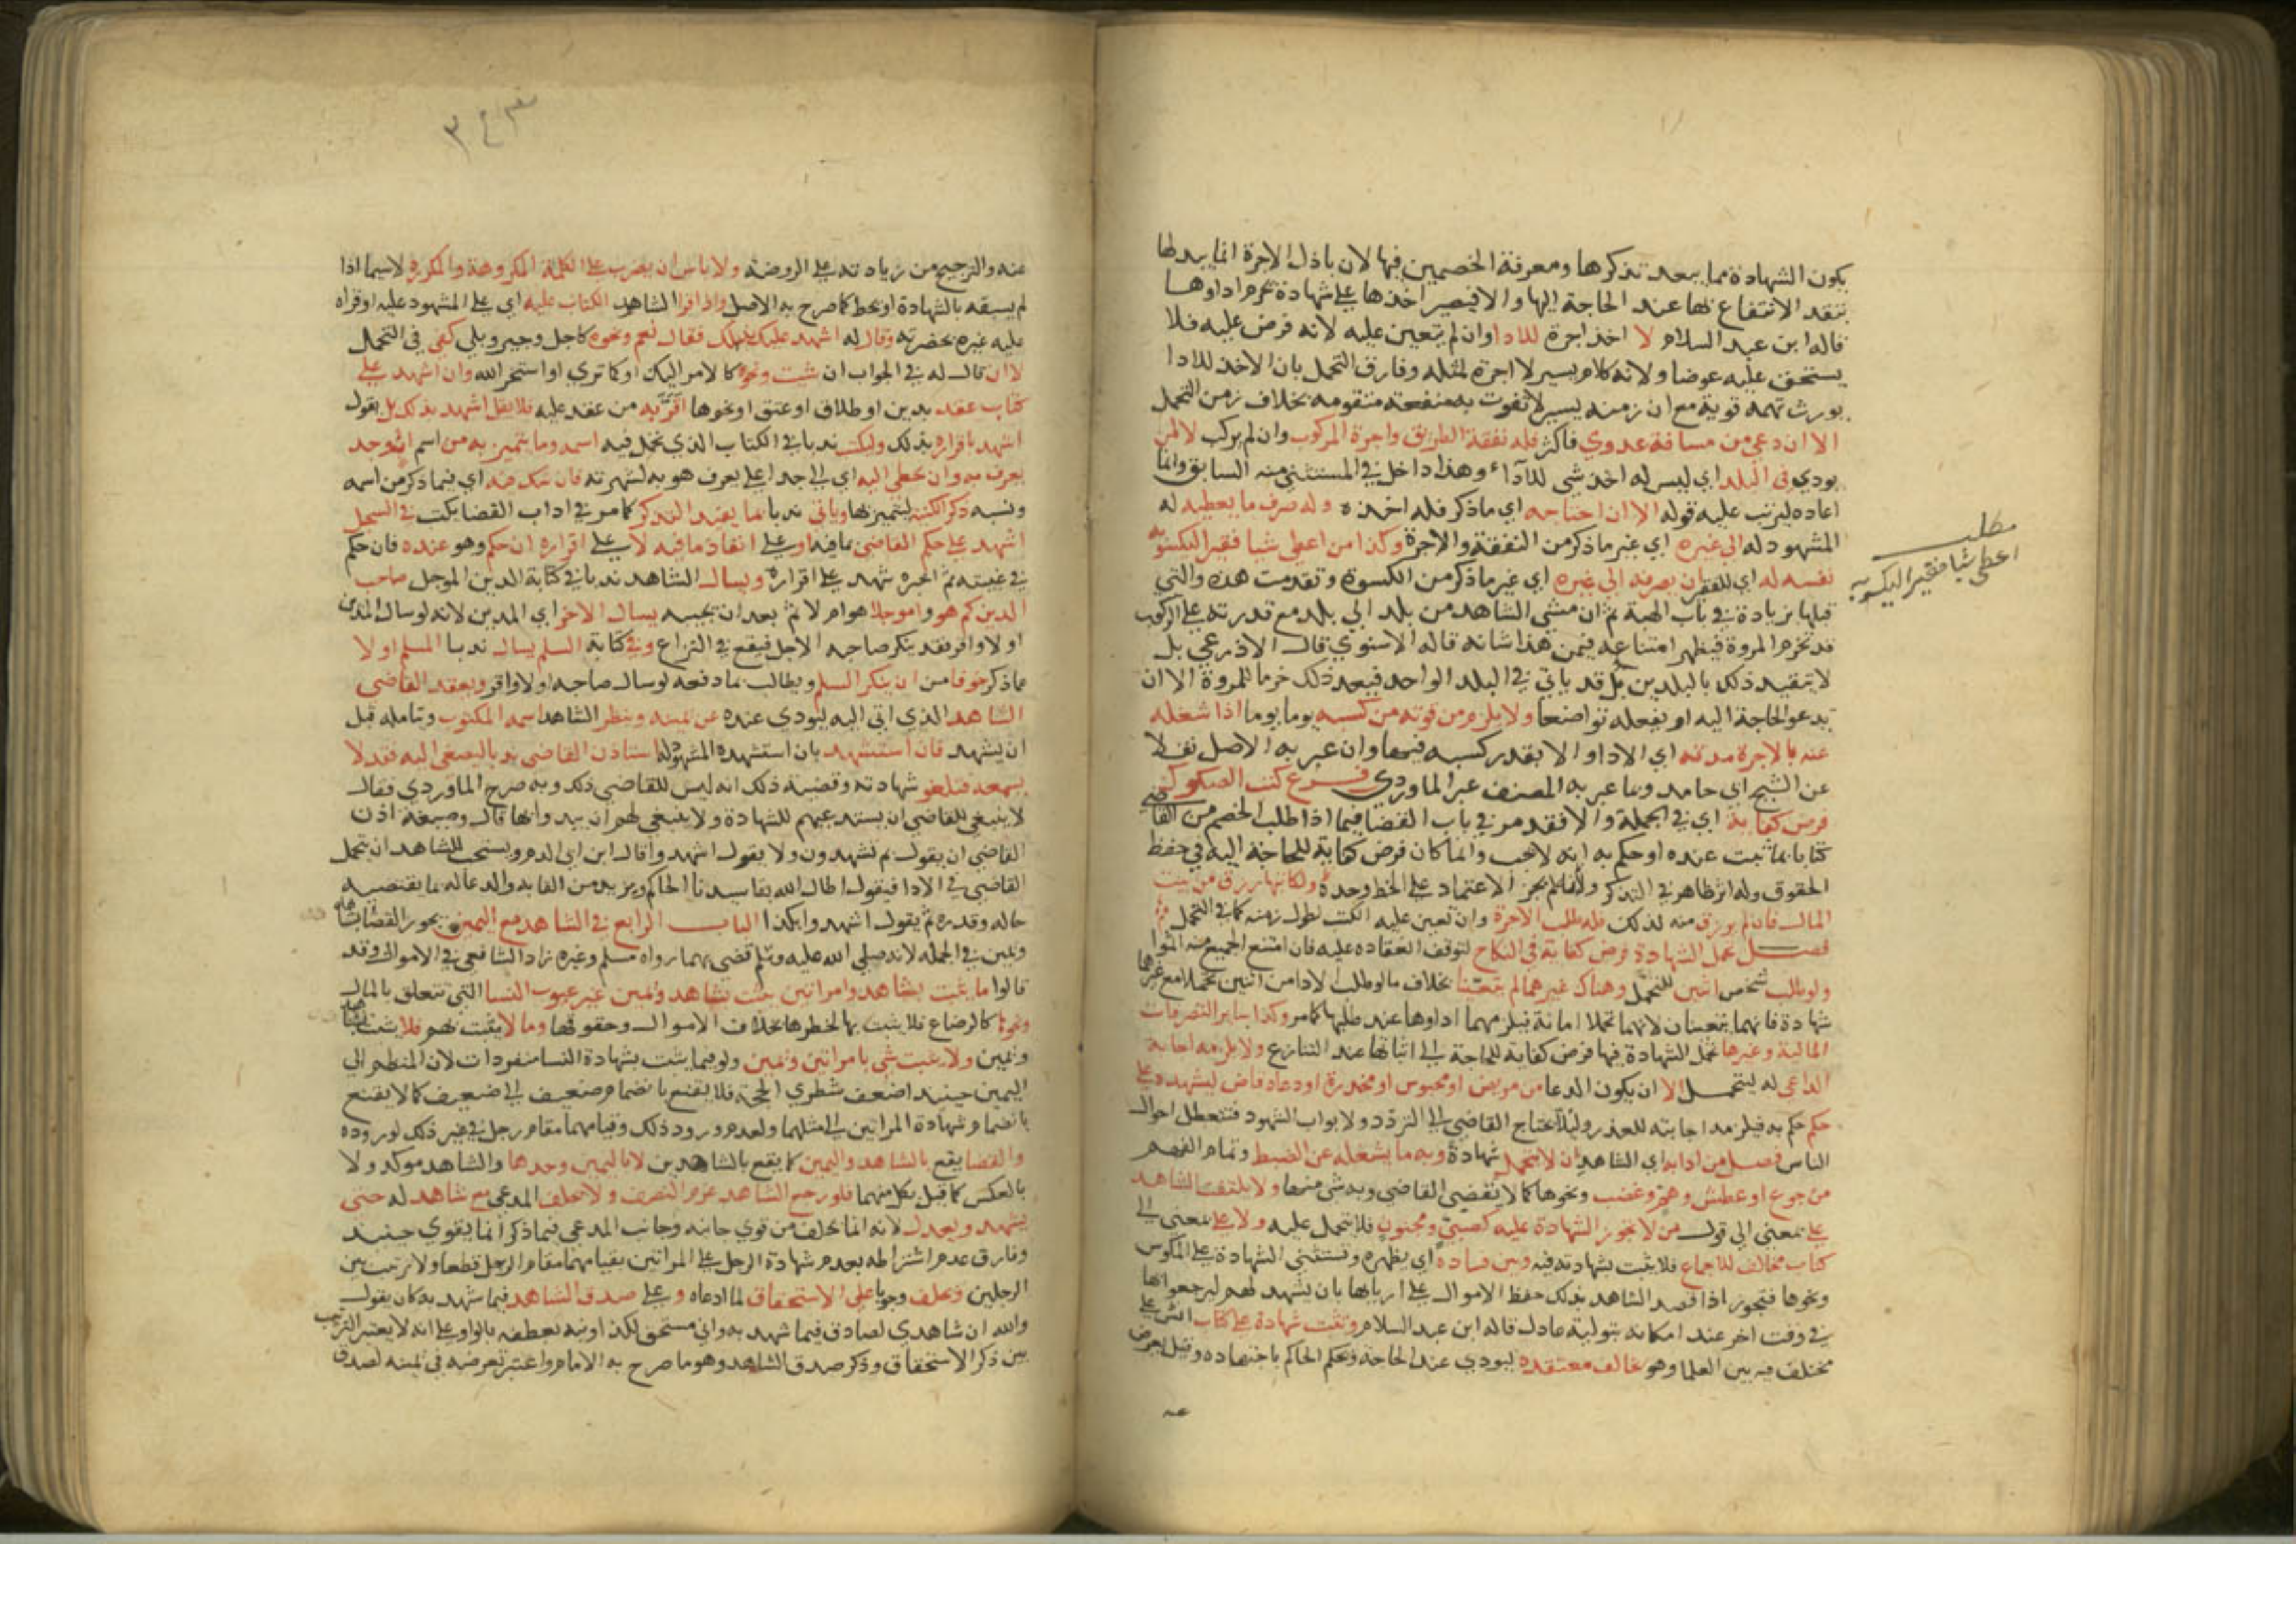 يكون الشهادة مما يبعد تذكرها ومعرفة الخصمين فيها لان باذل الاجرة انما يبذلها
بتقد الانتفاع بها عند الحاجة اليها والا فيصير اخذها على شهادة يحرم اداوها
قاله ابن عبد السلام لا اخذ اجرة للادا وان لم يتعين عليه لانه فرض عليه فلا
يستحق عليه عوضا ولانه كلام يسير لا اجرة لمثله وفارق التحمل بان الاخذ للادا
يورث تهمة قوية مع ان زمنه يسير لا تفوت به منفعة متقومة بخلاف زمن التحمل
الا ان دعي من مسافة عدوي فاكثر فله نفقة الطريق واجرة المركوب وان لم يركب لا لمن
يودي في البلد اي ليس له اخذ شي للآداء وهذا داخل في المستثنى منه السابق وانما
اعاده ليرتب عليه قوله الا ان احتاجه اي ماذكر فله اخذه وله صرف ما يعطيه له
المشهود له الى غيره اي غير ماذكر من النفقة والاجرة وكذا من اعطي شيا فقير اليكسو به
نفسه له اي للفقير ان يصرفه الى غيره اي غير ماذكر من الكسوة وتقدمت هذه والتي
قبلها بزيادة في باب الهبة ثم ان مشي الشاهد من بلد الي بلد مع قدرته على الركوب
قد يخرم المروة فيظهر امتناعه فيمن هذا شانه قاله الاسنوي قال الاذرعي بل
لا يتقيد ذلك بالبلدين بل قد ياتي في البلد الواحد فيعد ذلك خرما للمروة الا ان
يدعو الحاجة اليه او يفعله تواضعا ولا يلزم من قوته من كسبه يوما يوما اذا شغله
عنه الا باجرة مدته اي الادا والا بقدر كسبه فيها وان عبر به الاصل نقلا
عن الشيخ ابي حامد وبما عبر به المصنف عبر الماوردي فرع كتب الصكوك
فرض كفاية اي في الجملة والا فقد مر في باب القضا فيما اذا طلب الخصم من القاضي
كتابا بما ثبت عنده او حكم به انه لا يجب وانما كان فرض كفاية للحاجة اليه في حفظ
الحقوق وله اثر ظاهر في التذكر وانما لم يجز الاعتماد على الخط وحده ولكاتبها رزق من بيت
المال فان لم يرزق منه لذلك فله طلب الاجرة وان تعين عليه الكتب لطول زمنه كما في التحمل
فصل تحمل الشهادة فرض كفاية في النكاح لتوقف انعقاده عليه فان امتنع الجميع منه اثموا
ولو طلب شخص اثنين للتحمل وهناك غيرهما لم يتعينا بخلاف ما لو طلب الادا من اثنين تحملا مع غيرهما
شهادة فانهما يتعينان لانهما تحملا امانة فيلزمهما اداوها عند طلبها كما مر وكذا ساير التصرفات
المالية وغيرها تحمل الشهادة فيها فرض كفاية للحاجة الى اثباتها عند التنازع ولا يلزمه اجابة
الداعي له ليتحمل الا ان يكون الدعا من مريض او محبوس او مخدرة او دعاه قاض ليشهده على
حكم حكم به فيلزمه اجابته للعذر ولئلا يحتاج القاضي الى التردد ولا بواب الشهود فتتعطل احوال
الناس فصل من ادابه اي الشاهد ان لا يتحمل شهادة وبه ما يشغله عن الضبط وتمام الفهم
من جوع او عطش وهم وغضب ونحوها كما لا يقضي القاضي وبه شي منها ولا يلتفت الشاهد
على بمعنى الى قول من لا يجوز الشهادة عليه كصبي ومجنون فلا يتحمل عليه ولا على بمعنى الى
كتاب مخالف للاجماع فلا يثبت بشهادته فيه وبين فساده اي يظهره ويستثنى الشهادة على المكوس
ونحوها فتجوز اذا قصد الشاهد بذلك حفظ الاموال على اربابها بان يشهد لهم ليرجعوا بها
في وقت اخر عند امكانه بتولية عادل قاله ابن عبد السلام ويثبت شهادة على كتاب
مختلف فيه بين العلما وهو مخالف معتقده ليودي عند الحاجة ويحكم الحاكم باجتهاده وقيل يعرض
مطلب
اعطي شيا فقير اليكسو به
٣٤٣
عنه والترجيح من زيادته على الروضة ولا باس ان يضرب على الكلمة المكروهة والمكررة لا سيما اذا
لم يسبقه بالشهادة او بخط كما صرح به الاصل واذا قرا الشاهد الكتاب عليه اي على المشهود عليه او قراه
عليه غيره بحضرته وقال له اشهد عليك بذلك فقال نعم ونحوه كاجل وجير وبلي كفى في التحمل
لا ان قال له في الجواب ان شئت ونحوه كالامر اليك او كما تري او استخر الله وان اشهد على
كتاب عقد بدين او طلاق او عتق او نحوها اقر به من عقد عليه فلا يقل اشهد بذلك بل يقول
اشهد باقراره بذلك وليكتب ندبا في الكتاب الذي تحمل فيه اسمه وما يتميز به من اسم اب وجد
يعرف به وان تخطى اليه اي الى جد اعلى يعرف هو به لشهرته فان شك فيه اي فيما ذكر من اسمه
ونسبه ذكر الكنية ليتميز بها وياتي ندبا بما يفيد التذكر كما مر في اداب القضا يكتب في السجل
اشهد على حكم القاضي بما فيه او على انفاذ ما فيه لا على اقراره ان حكم وهو عنده فان حكم
في غيبته ثم اخبره شهد على اقراره ويسال الشاهد ندبا في كتابة الدين الموجل صاحب
الدين كم هو واموجل هو ام لا ثم بعد ان يجيبه يسال الاخر اي المدين لانه لو سال المدين
اولا واقر فقد ينكر صاحبه الاجل فيقع في النزاع وفي كتابة السلم يسال ندبا المسلم اولا
عما ذكر خوفا من ان ينكر السلم ويطالب بما دفعه لو سال صاحبه اولا واقر ويقعد القاضي
الشاهد الذي اتى اليه ليودي عنده عن يمينه وينظر الشاهد اسمه المكتوب ويتامله قبل
ان يشهد فان استشهد بان استشهده المشهود له استاذن القاضي ندبا ليصغي اليه فقد لا
يسمعه فتلغو شهادته وقضية ذلك انه ليس للقاضي ذلك وبه صرح الماوردي فقال
لا ينبغي للقاضي ان يستدعيهم للشهادة ولا ينبغي لهم ان يبدوا بها قال وصيغة اذن
القاضي ان يقول بم تشهدون ولا يقول اشهدوا قال ابن ابي الدم ويستحب للشاهد ان يبجل
القاضي في الادا فيقول اطال الله بقا سيدنا الحاكم ويزيد من القابه والدعا له ما يقتضيه
حاله وقدره ثم يقول اشهد وابكذا الباب الرابع في الشاهد مع اليمين يجوز القضا بشاهد
ويمين في الجملة لانه صلى الله عليه وسلم قضى بهما رواه مسلم وغيره زاد الشافعي في الاموال وقد
قالوا ما يثبت بشاهد وامراتين يثبت بشاهد ويمين غير عيوب النسا التي تتعلق بالمال
ونحوها كالرضاع فلا يثبت بهما لخطرها بخلاف الاموال وحقوقها وما لا يثبت بهم فلا يثبت بشاهد
ويمين ولا يثبت شي بامراتين ويمين ولو فيما يثبت بشهادة النسا منفردات لان المنضم الى
اليمين حينيد اضعف شطري الحجة فلا يقنع بانضمام ضعيف الى ضعيف كما لا يقنع
بانضمام شهادة المراتين الى مثلهما ولعدم ورود ذلك وقيامهما مقام رجل في غير ذلك لوروده
والقضا يقع بالشاهد واليمين كما يقع بالشاهدين لا باليمين وحدها والشاهد موكد ولا
بالعكس كما قيل بكل منهما فلو رجع الشاهد غرم النصف ولا يحلف المدعي مع شاهد له حتى
يشهد ويعدل لانه انما يحلف من قوي جانبه وجانب المدعي فيما ذكر انما يقوي حينيد
وفارق عدم اشتراطه بعدم شهادة الرجل على المراتين بقيامهما مقام الرجل قطعا ولا ترتيب بين
الرجلين ويحلف وجوبا على الاستحقاق لما ادعاه وعلى صدق الشاهد فيما شهد به كان يقول
والله ان شاهدي لصادق فيما شهد به واني مستحق لكذا وتبه بعطفه بالواو على انه لا يعتبر الترتيب
بين ذكر الاستحقاق وذكر صدق الشاهد وهو ما صرح به الامام واعتبر تعرضه في يمينه لصدق